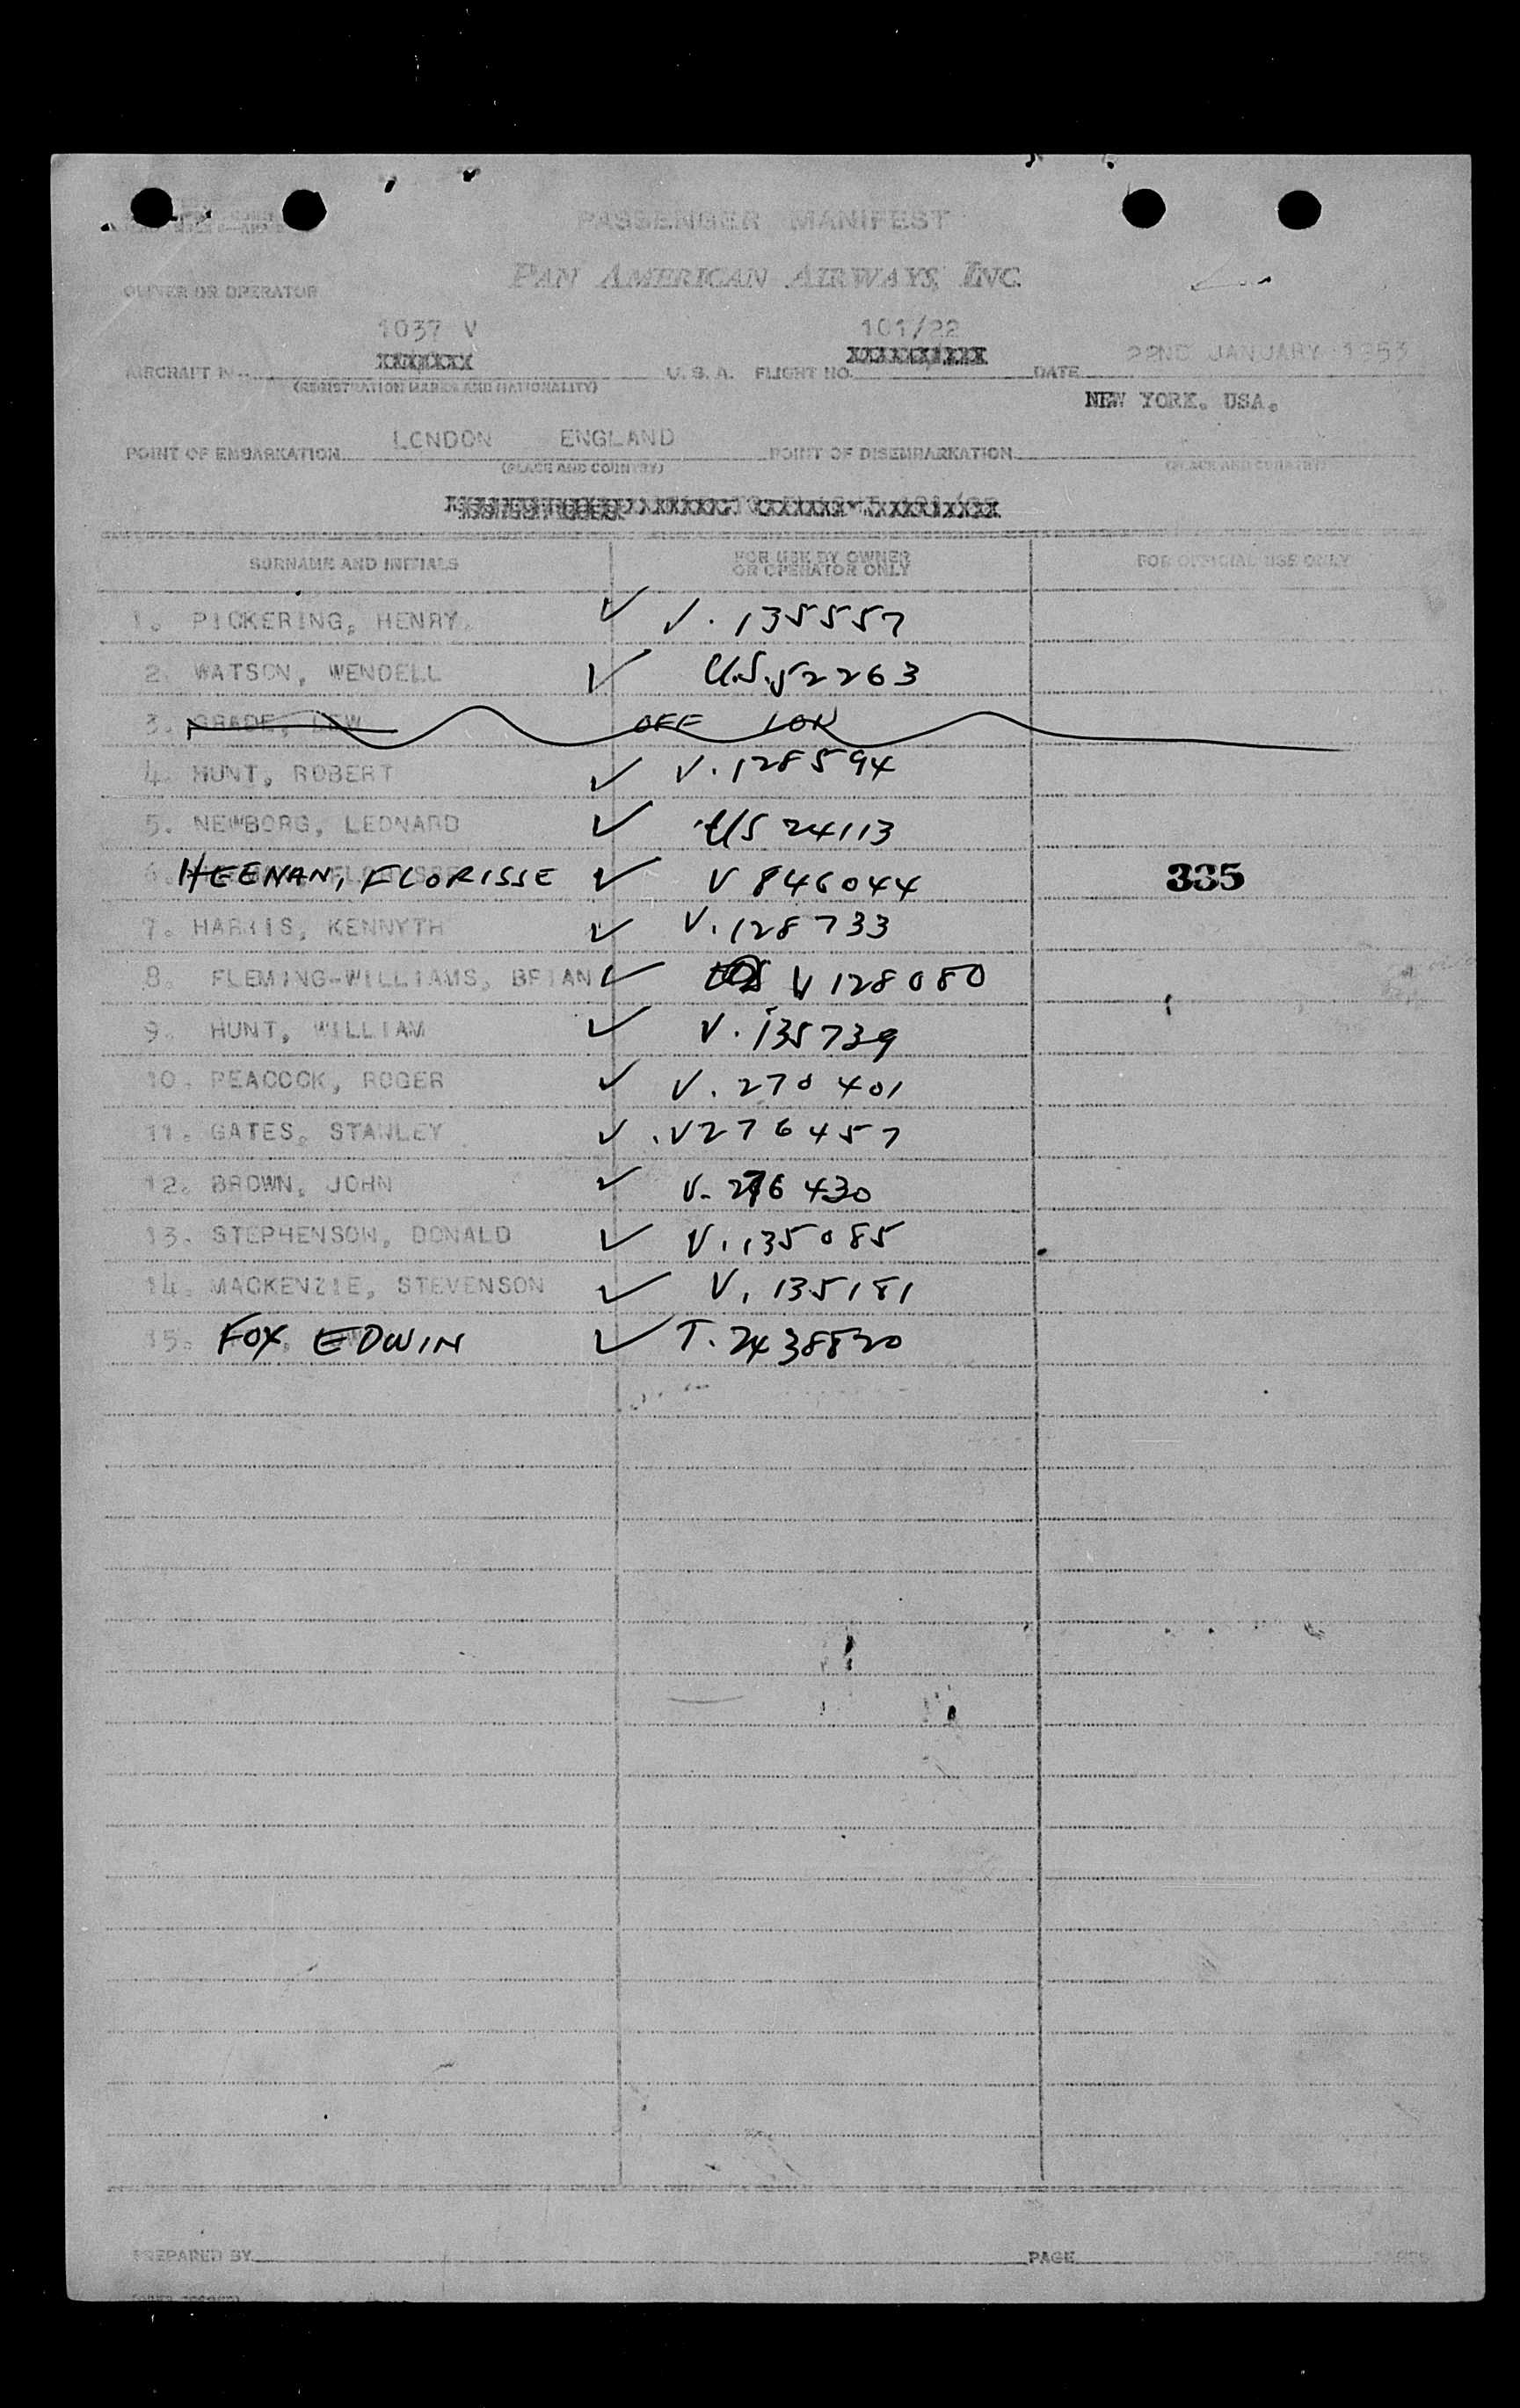 PASSENGER MANIFEST
PAN AMERICAN AIRWAYS, INC.
OWNER OR OPERATOR
1037 V 101/22
AIRCRAFT (REGISTRATION MARKS AND NATIONALITY) U. S. A. FLIGHT NO. DATE 22ND JANUARY 1953
NEW YORK. USA.
POINT OF EMBARKATION LONDON ENGLAND POINT OF DISEMBARKATION
(PLACE AND COUNTRY) (PLACE AND COUNTRY)
SURNAME AND INITIALS FOR USE BY OWNER OR OPERATOR ONLY FOR OFFICIAL USE ONLY
1. PICKERING, HENRY. ✓ V. 135557
2. WATSON, WENDELL ✓ U.S. 52263
3. GRADE, LEW OFF LON
4. HUNT, ROBERT ✓ V. 128594
5. NEWBORG, LEONARD ✓ US 24113
HEENAN, FLORISSE ✓ V 846044 335
7. HARRIS, KENNYTH ✓ V. 128733
8. FLEMING-WILLIAMS, BRIAN ✓ V 128080
9. HUNT, WILLIAM ✓ V. 135739
10. PEACOCK, ROGER ✓ V. 270401
11. GATES, STANLEY ✓ .V276457
12. BROWN, JOHN ✓ V. 276430
13. STEPHENSON, DONALD ✓ V. 135085
14. MACKENZIE, STEVENSON ✓ V. 135181
15. FOX EDWIN ✓ T. 2438820
PREPARED BY PAGE OF PAGES